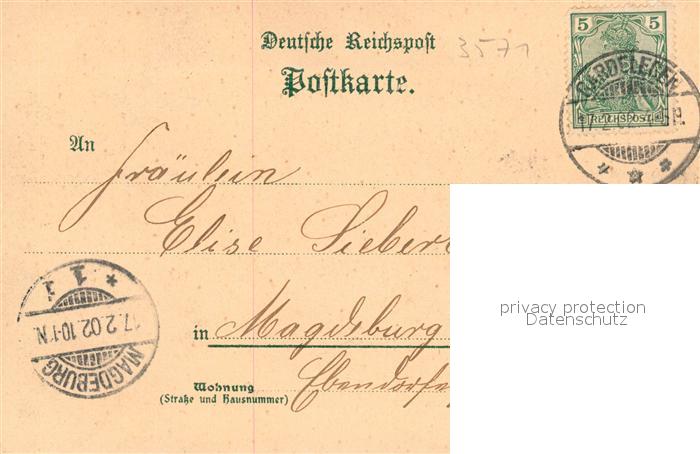 Deutsche Reichspost
3571
Postkarte.
5 5
REICHSPOST
GARDELEGEN
17.2.02
An
Fräulein
Elise Siebert
in Magdeburg
Wohnung
(Straße und Hausnummer)
MAGDEBURG
17.2.02 10-11N.
* 1 i
privacy protection
Datenschutz